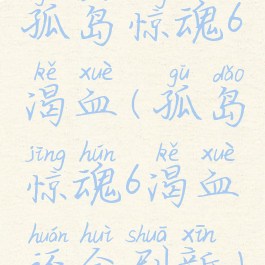 孤岛惊魂6
kě xuè gū dǎo
渴血(孤岛
jīng hún kě xuè
惊魂6渴血
huán huì shuā xīn
还会刷新)